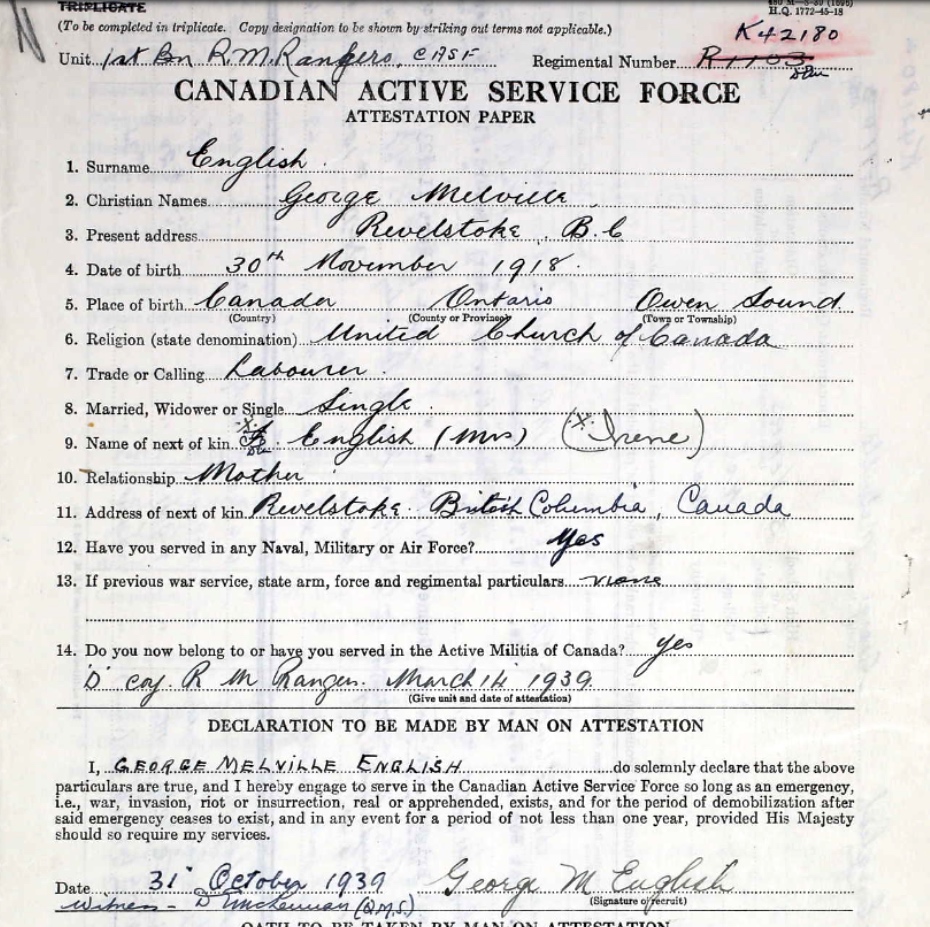 TRIPLICATE
H.Q. 1772-45-18
(To be completed in triplicate. Copy designation to be shown by striking out terms not applicable.)
K42180
Unit 1st Bn R.M. Rangers, CASF Regimental Number
CANADIAN ACTIVE SERVICE FORCE
ATTESTATION PAPER
1. Surname English
2. Christian Names George Melville
3. Present address Revelstoke, B.C
4. Date of birth 30th November 1918.
5. Place of birth Canada Ontario Owen Sound
(Country) (County or Province) (Town or Township)
6. Religion (state denomination) United Church of Canada
7. Trade or Calling Labourer.
8. Married, Widower or Single Single
9. Name of next of kin English (Mrs) (Irene)
10. Relationship Mother
11. Address of next of kin Revelstoke. British Columbia, Canada
12. Have you served in any Naval, Military or Air Force? Yes
13. If previous war service, state arm, force and regimental particulars none
14. Do you now belong to or have you served in the Active Militia of Canada? yes
"D" coy. R M Rangers. March 14 1939.
(Give unit and date of attestation)
DECLARATION TO BE MADE BY MAN ON ATTESTATION
I, GEORGE MELVILLE ENGLISH do solemnly declare that the above
particulars are true, and I hereby engage to serve in the Canadian Active Service Force so long as an emergency,
i.e., war, invasion, riot or insurrection, real or apprehended, exists, and for the period of demobilization after
said emergency ceases to exist, and in any event for a period of not less than one year, provided His Majesty
should so require my services.
Date 31 October 1939 George M English
(Signature of recruit)
Witness - D McLennan (Q.M.S.)
OATH TO BE TAKEN BY MAN ON ATTESTATION